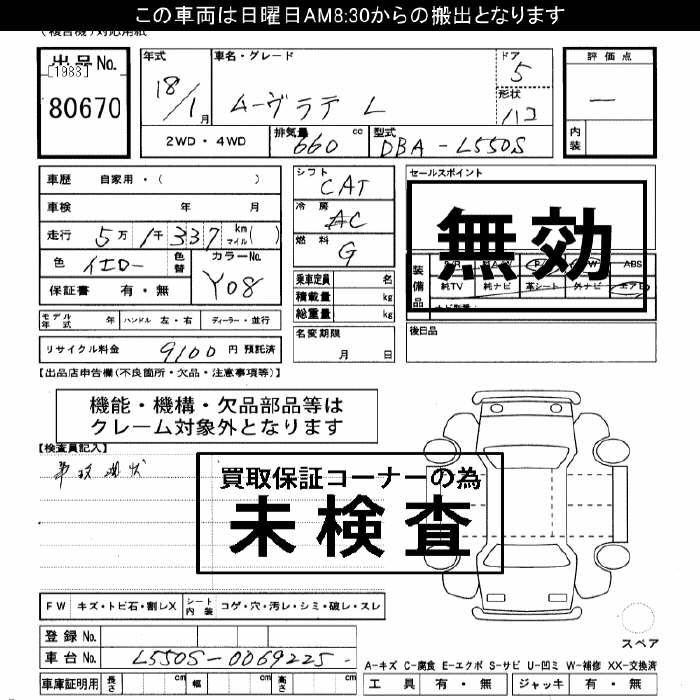 この車両は日曜日AM8:30からの搬出となります
(複合機)対応用紙
出品No.
[1983]
80670
年式
18/1月
車名・グレード
ムーヴラテ L
ドア
5
形状
ハコ
評価点
—
内装
2WD・4WD
排気量
660 cc
型式
DBA-L550S
車歴 自家用・( )
車検 年 月
走行 5万1千337 km マイル( )
色 イエロー 色替
カラーNo.
Y08
保証書 有・無
シフト
CAT
冷房
AC
燃料
G
乗車定員 名
積載量 kg
総重量 kg
セールスポイント
無効
装備品
ABS
純TV 純ナビ 革シート 外ナビ エアB
モデル年式 年 ハンドル 左・右 ディーラー・並行
名変期限
月 日
後日品
リサイクル料金 9100 円 預託済
【出品店申告欄(不良箇所・欠品・注意事項等)】
機能・機構・欠品部品等は
クレーム対象外となります
【検査員記入】
現状
買取保証コーナーの為
未検査
FW キズ・トビ石・割レX シート内装 コゲ・穴・汚レ・シミ・破レ・スレ
スペア
登録No.
車台No. L550S-0069225-
A-キズ C-腐食 E-エクボ S-サビ U-凹ミ W-補修 XX-交換済
車庫証明用 長さ cm 幅 cm 高さ cm
工具 有・無 ジャッキ 有・無